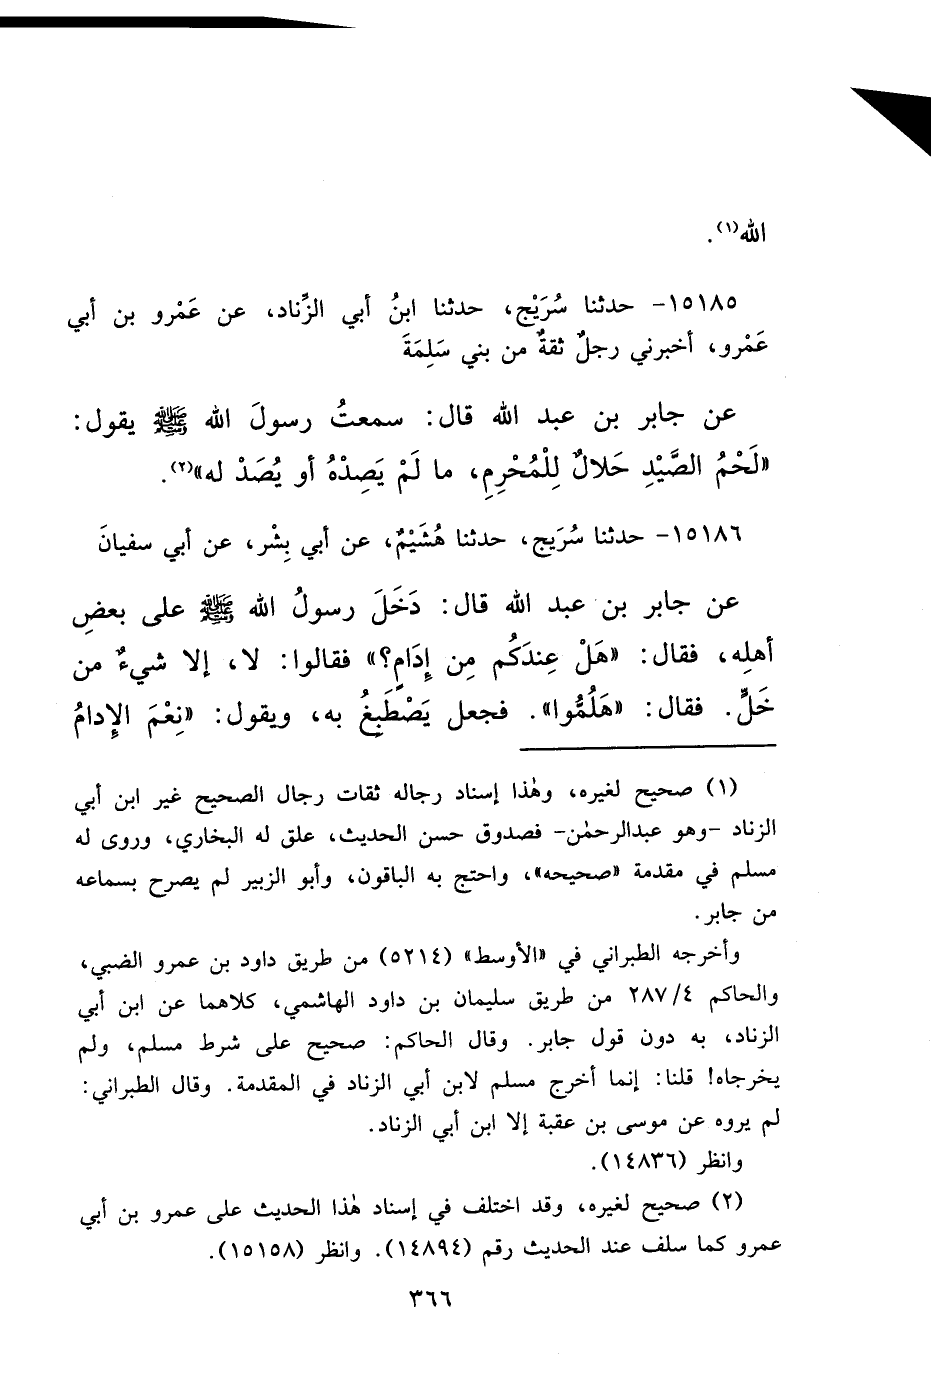 الله(١).
١٥١٨٥- حدثنا سُرَيْج، حدثنا ابنُ أبي الزِّناد، عن عَمْرو بن أبي
عَمْرو، أخبرني رجلٌ ثقةٌ من بني سَلِمَةَ
عن جابر بن عبد الله قال: سمعتُ رسولَ الله ﷺ يقول:
«لَحْمُ الصَّيْدِ حَلالٌ لِلْمُحْرِمِ، ما لَمْ يَصِدْهُ أو يُصَدْ له»(٢).
١٥١٨٦- حدثنا سُرَيج، حدثنا هُشَيْمٌ، عن أبي بِشْر، عن أبي سفيانَ
عن جابر بن عبد الله قال: دَخَلَ رسولُ الله ﷺ على بعضِ
أهلِه، فقال: «هَلْ عِندَكُم مِن إدَامٍ؟» فقالوا: لا، إلا شيءٌ من
خَلٍّ. فقال: «هَلُمُّوا». فجعل يَصْطَبِغُ به، ويقول: «نِعْمَ الإدامُ
(١) صحيح لغيره، وهٰذا إسناد رجاله ثقات رجال الصحيح غير ابن أبي
الزناد -وهو عبدالرحمٰن- فصدوق حسن الحديث، علق له البخاري، وروى له
مسلم في مقدمة «صحيحه»، واحتج به الباقون، وأبو الزبير لم يصرح بسماعه
من جابر.
وأخرجه الطبراني في «الأوسط» (٥٢١٤) من طريق داود بن عمرو الضبي،
والحاكم ٢٨٧/٤ من طريق سليمان بن داود الهاشمي، كلاهما عن ابن أبي
الزناد، به دون قول جابر. وقال الحاكم: صحيح على شرط مسلم، ولم
يخرجاه! قلنا: إنما أخرج مسلم لابن أبي الزناد في المقدمة. وقال الطبراني:
لم يروه عن موسى بن عقبة إلا ابن أبي الزناد.
وانظر (١٤٨٣٦).
(٢) صحيح لغيره، وقد اختلف في إسناد هٰذا الحديث على عمرو بن أبي
عمرو كما سلف عند الحديث رقم (١٤٨٩٤). وانظر (١٥١٥٨).
٣٦٦